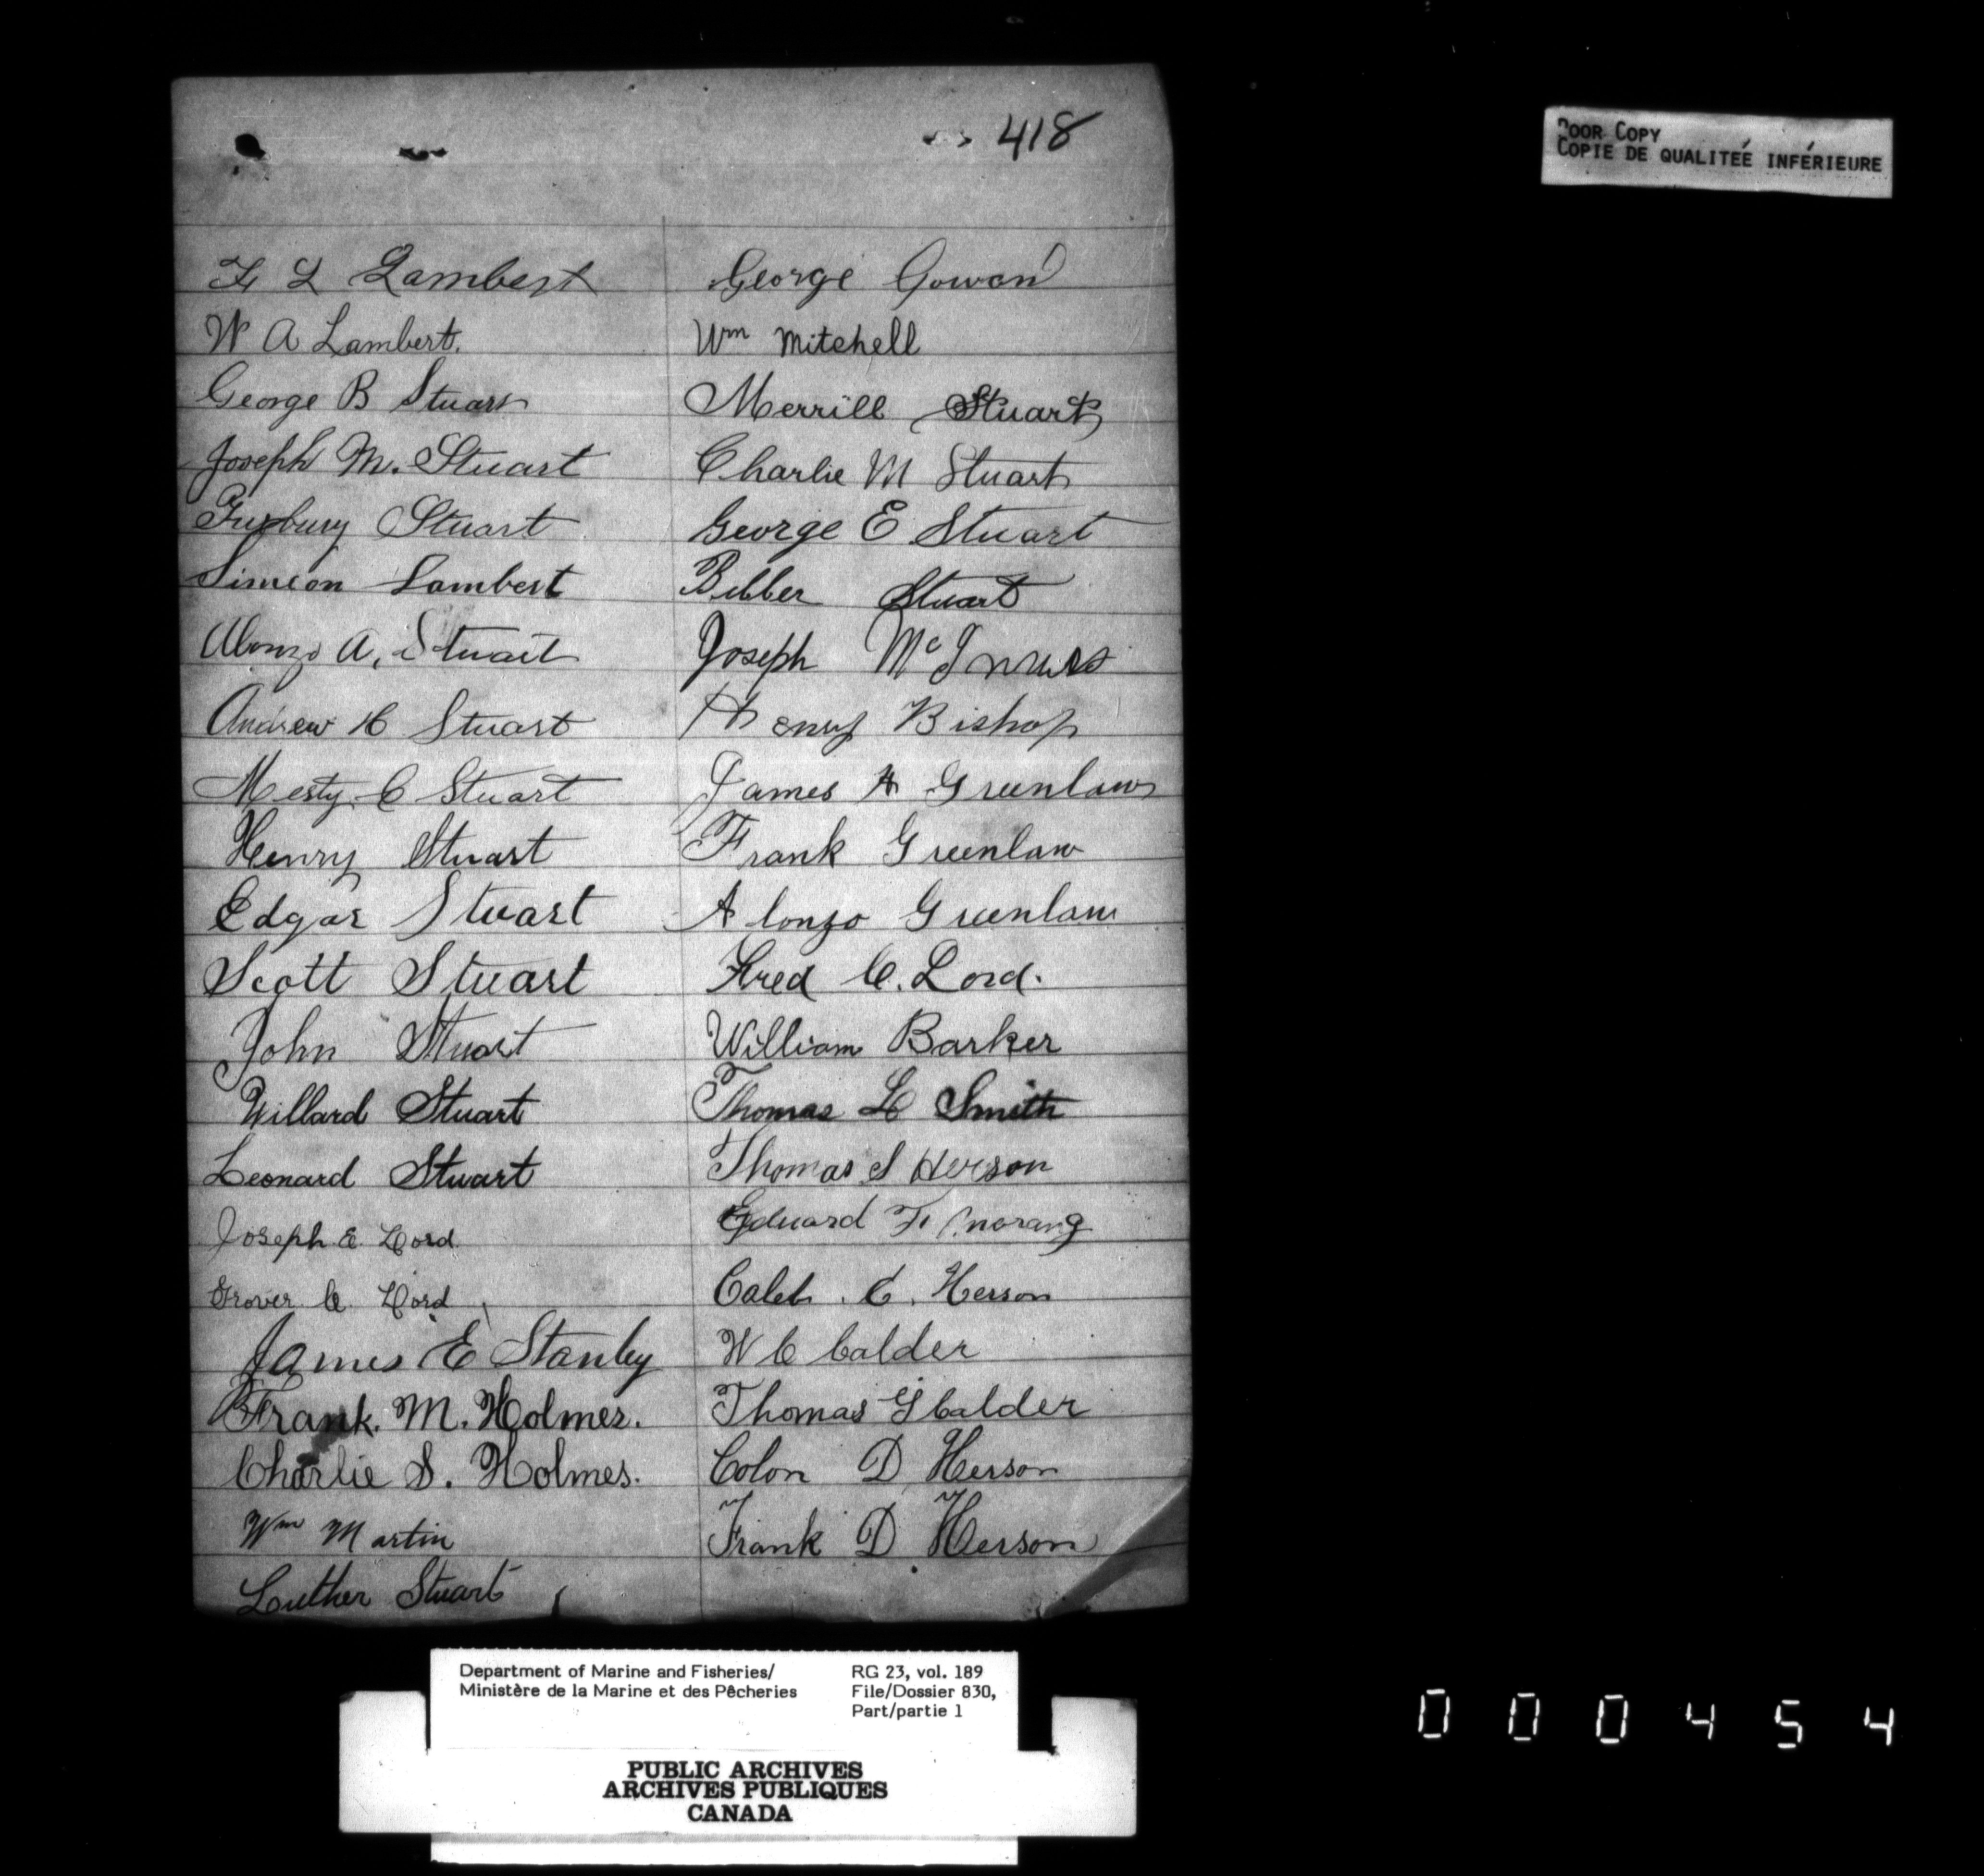 418
POOR COPY
COPIE DE QUALITEÉ INFÉRIEURE
F L Lambert
W A Lambert.
George B Stuart
Joseph M. Stuart
Stuart
Simeon Lambert
Alonzo A. Stuart
Andrew H Stuart
Mesty C Stuart
Henry Stuart
Edgar Stuart
Scott Stuart
John Stuart
Willard Stuart
Leonard Stuart
Joseph E. Lord
Grover C. Lord
James E Stanley
Frank. M. Holmes.
Charlie S. Holmes.
Wm Martin
Luther Stuart
George Gowan
Wm Mitchell
Merrill Stuart
Charlie M Stuart
George E Stuart
Bibber Stuart
Joseph
Henry Bishop
James H Greenlaw
Frank Greenlaw
Alonzo Greenlaw
Fred C. Lord.
William Barker
Thomas L Smith
Thomas S Herson
Eduard F
Caleb. C. Herson
W C Calder
Thomas G Calder
Colon D Herson
Frank D Herson
Department of Marine and Fisheries/
Ministère de la Marine et des Pêcheries
RG 23, vol. 189
File/Dossier 830,
Part/partie 1
PUBLIC ARCHIVES
ARCHIVES PUBLIQUES
CANADA
000454